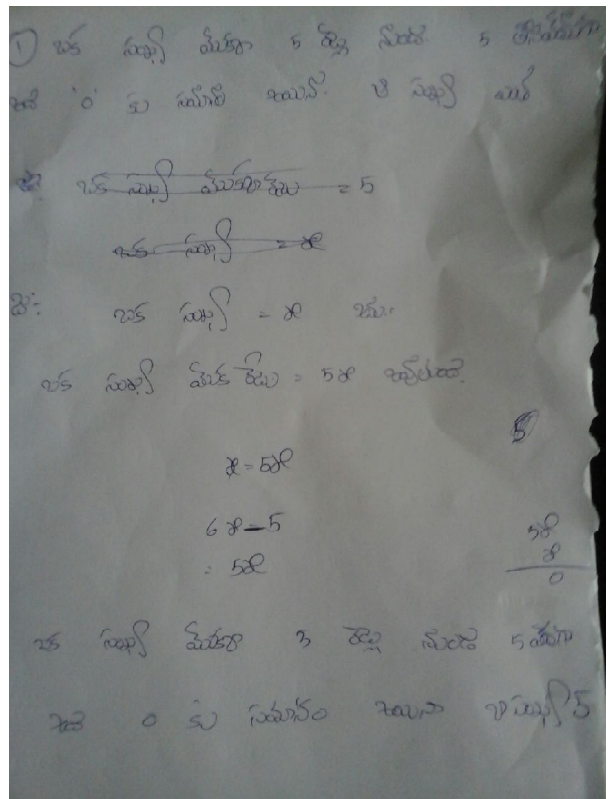 ① ఒక సంఖ్య యొక్క 5 రెట్ల నుండి 5 తీసివేయగా
అది '0' కు సమానం అయిన ఆ సంఖ్య ఎంత
ఒక సంఖ్య యొక్క రెట్లు = 5
ఒక సంఖ్య = x
జ:- ఒక సంఖ్య = x అను
ఒక సంఖ్య యొక్క రేటు = 5x అవుతుంది.
5
x = 5x
6x - 5
= 5x
5x
x
0
ఒక సంఖ్య యొక్క 3 రెట్ల నుండి 5 తీయగా
అది 0 కు సమానం అయినా ఆ సంఖ్య 5